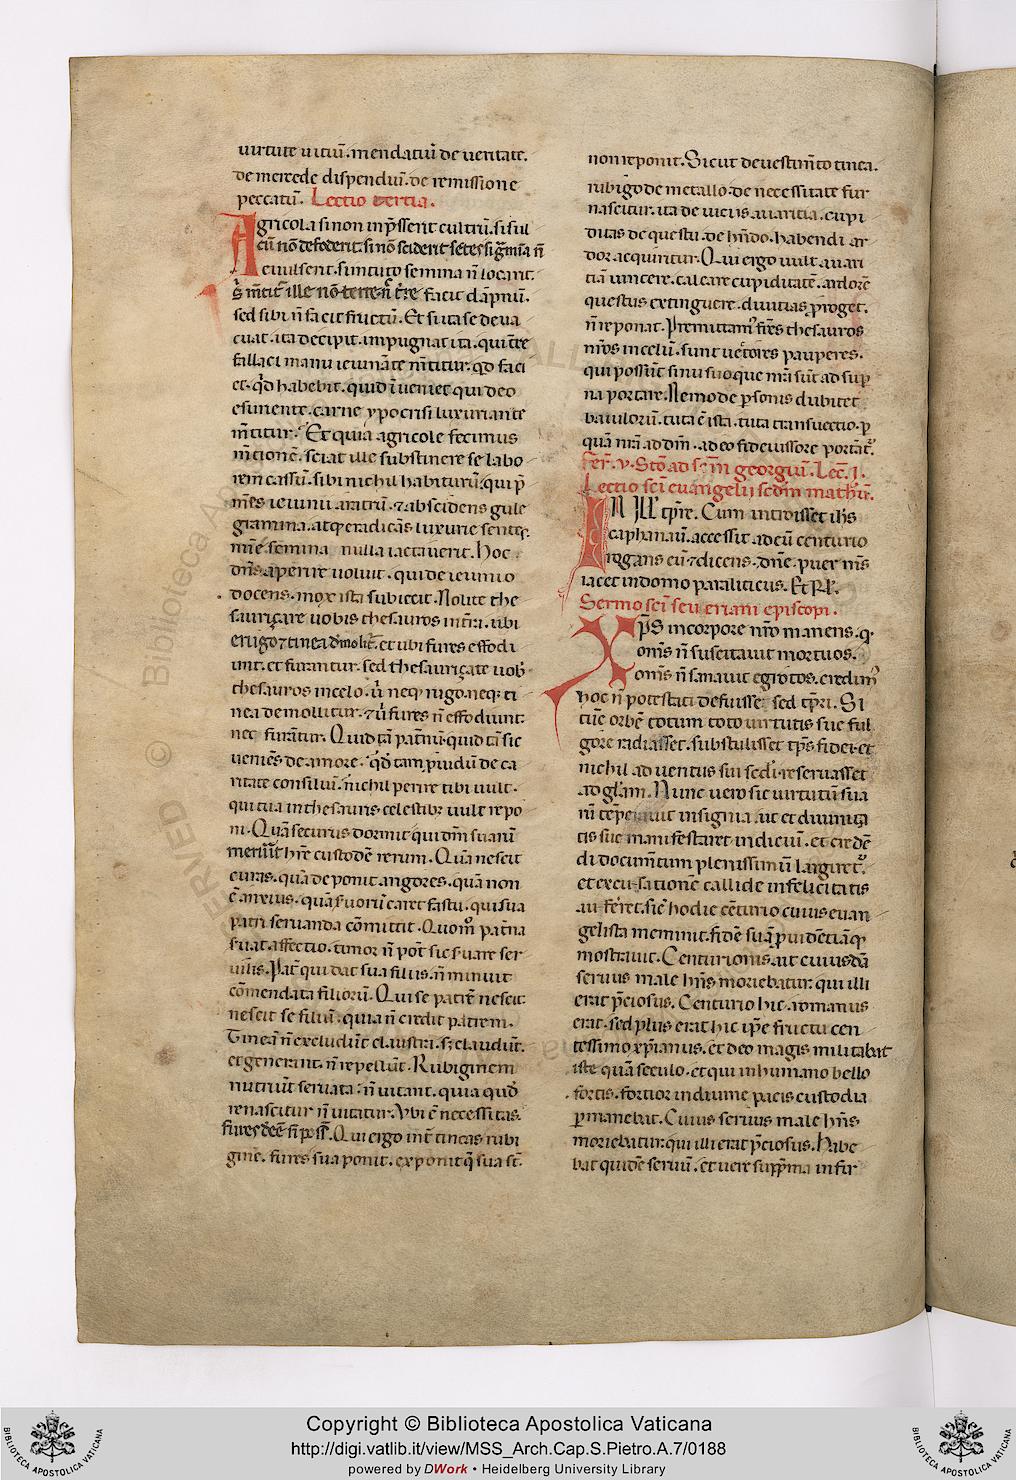 virtute vitiũ. mendatiũ de veritate.
de mercede dispendiũ. de remissione
peccatũ. Lectio tertia.
Agricola si non inp̃sserit cultrũ. si sul
cũ nõ defoderit. si nõ sciderit sẽtes si g̃mia ñ
evulserit. si in tuto semina ñ locarit.
facit dãpnũ.
sed sibi ñ facit fructũ. Et si ita se deva
cuat. ita decipit. impugnat ita. qui tr̃e
fallaci manu ieiunãte m̃titur. qd faci
et. qd habebit. quid ĩveniet qui deo
esuriente carne ypocrisi luxuriante
m̃titur. Et quia agricole fecimus
m̃tionẽ. sciat ille substinere se labo
rem cassũ. sibi nichil habiturũ. qui p̃
m̃es ieiunii aratrũ. ⁊ abscidens gule
gramina. atq; eradicãs luxurie sentes.
mĩe semina nulla iactaverit. Hoc
dñs aperire voluit. qui de ieiunio
docens. mox ista subiecit. Nolite the
sauriçare vobis thesauros in t̃ra. ubi
erugo ⁊ tinea demolit̃. et ubi fures effodi
unt. et furantur. sed thesauriçate vob̃
thesauros in celo. ũ neq; rugo neq; ti
nea demollitur. ⁊ ũ fures ñ effodiunt
nec furãtur. Quid tã pat̃nũ. quid tã sic
veniẽs de amore. qd tam p̃vidũ de ca
ritate consiliũ. nichil perire tibi vult.
qui tua in thesauris celestib; vult repo
ni. Quã securus dormit qui dm̃ suarũ
meruit hr̃e custodẽ rerum. Quã nescit
curis. quã deponit angores. quã non
ẽ anxius. quã s̃vorũ caret fastu. qui sua
patri servanda cõmittit. Quom̃ pat̃na
s̃vat affectio. timor ñ pot̃ sic s̃vare ser
vilis. Pat̃ qui dat sua filiis. ñ minuit
cõmendata filiorũ. Qui se patrẽ nescit
nescit se filiũ. quia ñ credit patrem.
Tineã ñ excludũt claustra. s; claudũt.
et generant. ñ repellũt. Rubiginem
nutriũt servata. ñ vitant. quia quod
renascitur ñ vitatur. Ubi ẽ necessitas.
fures deẽe ñ pos̃t. Qui ergo int̃ tineas rubi
ginẽ. fures sua ponit. exponit q̃ sua st̃.
non reponit. Sicut de vestim̃to tinea.
rubigo de metallo. de necessitate fur
nascitur. ita de viciis avaritia. cupi
ditas de questu. de hñdo. habendi ar
dor acquiritur. Qui ergo vult avari
tiã vincere. calcare cupiditatẽ. ardorẽ
questus extinguere. divitias p̃roget.
ñ reponat. Premittam; fr̃es thesauros
nr̃os in celũ. sunt vectores pauperes.
qui possũt sinu suo que nr̃a sũt ad sup̃
na portare. Nemo de p̃sonis dubitet
baiulorũ. tuta ẽ ista. tuta transvectio. p̃
quã nr̃a ad dm̃. a deo fideiussore portãt̃.
Fer̃. v. Stõ ad sc̃m georgiũ. Lec̃. i.
Lectio sc̃i evangelii scdm̃ matheũ.
IN ILL. tp̃re. Cum introisset ihs̃
capharnaũ. accessit ad eũ centurio
rogans eũ ⁊ dicens. dñe. puer m̃s
iacet in domo paraliticus. Et Rl̃.
Sermo sc̃i severiani episcopi.
Xp̃s in corpore nr̃o manens. q;
omĩs ñ suscitavit mortuos.
omĩs ñ sanavit egrotos. credim;
hoc ñ potestati defuisse. sed tp̃ri. Si
tũc orbẽ totum toto virtutis sue ful
gore radiasset. substulisset tp̃s fidei et
nichil adventus sui sedi reservasset
ad gl̃am. Nunc vero sic virtutũ sua
rũ tẽperavit insignia. ut et divinita
tis sue manifestaret indiciũ. et crede
di documẽtum plenissimũ largiret̃.
et excusationẽ callide infelicitatis
auferret. sic̃ hodie cẽturio cuius evan
gelista meminit. fidẽ suã p̃videtiãq;
mostravit. Centurionis ait cuiusdã
servus male hñs moriebatur. qui illi
erat p̃ciosus. Centurio hic romanus
erat. sed plus erat hic ip̃e fructu cen
tessimo xp̃ianus. et deo magis militabat
iste quã seculo. et qui in humano bello
fortis. fortior in divine pacis custodia
p̃manebat. Cuius servus male hñs
moriebatur. qui illi erat p̃ciosus. Habe
bat quidẽ servũ. et vere sup̃ma infir
Copyright © Biblioteca Apostolica Vaticana
http://digi.vatlib.it/view/MSS_Arch.Cap.S.Pietro.A.7/0188
powered by DWork • Heidelberg University Library
BIBLIOTECA APOSTOLICA VATICANA
BIBLIOTECA APOSTOLICA VATICANA